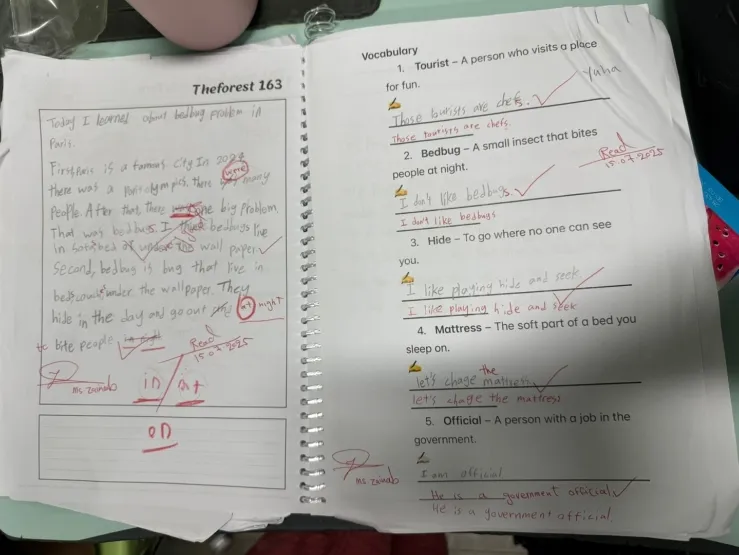 Theforest 163
Today I learned about bedbug problem in
Paris.
First Paris is a famous City In 2024
were
there was a Paris olympics. there many
People. After that, there one big Problem
That was bedbugs. I bedbugs live
in under the wall paper
Second, bedbug is bug that live in
bed, couch under the wallpaper. They
hide in the day and go out at night
to bite people
Read
15.07.2025
ms. zainab
in / at
on
Vocabulary
1. Tourist – A person who visits a place
for fun.
Yuha
Those tourists are chefs.
Those tourists are chefs.
2. Bedbug – A small insect that bites
people at night.
Read
15.07.2025
I don't like bedbugs.
I don't like bedbugs
3. Hide – To go where no one can see
you.
I like playing hide and seek.
I like playing hide and seek
4. Mattress – The soft part of a bed you
sleep on.
the
let's chage mattress
let's chage the mattress
5. Official – A person with a job in the
government.
I am official
ms. zainab
He is a government official
He is a government official.